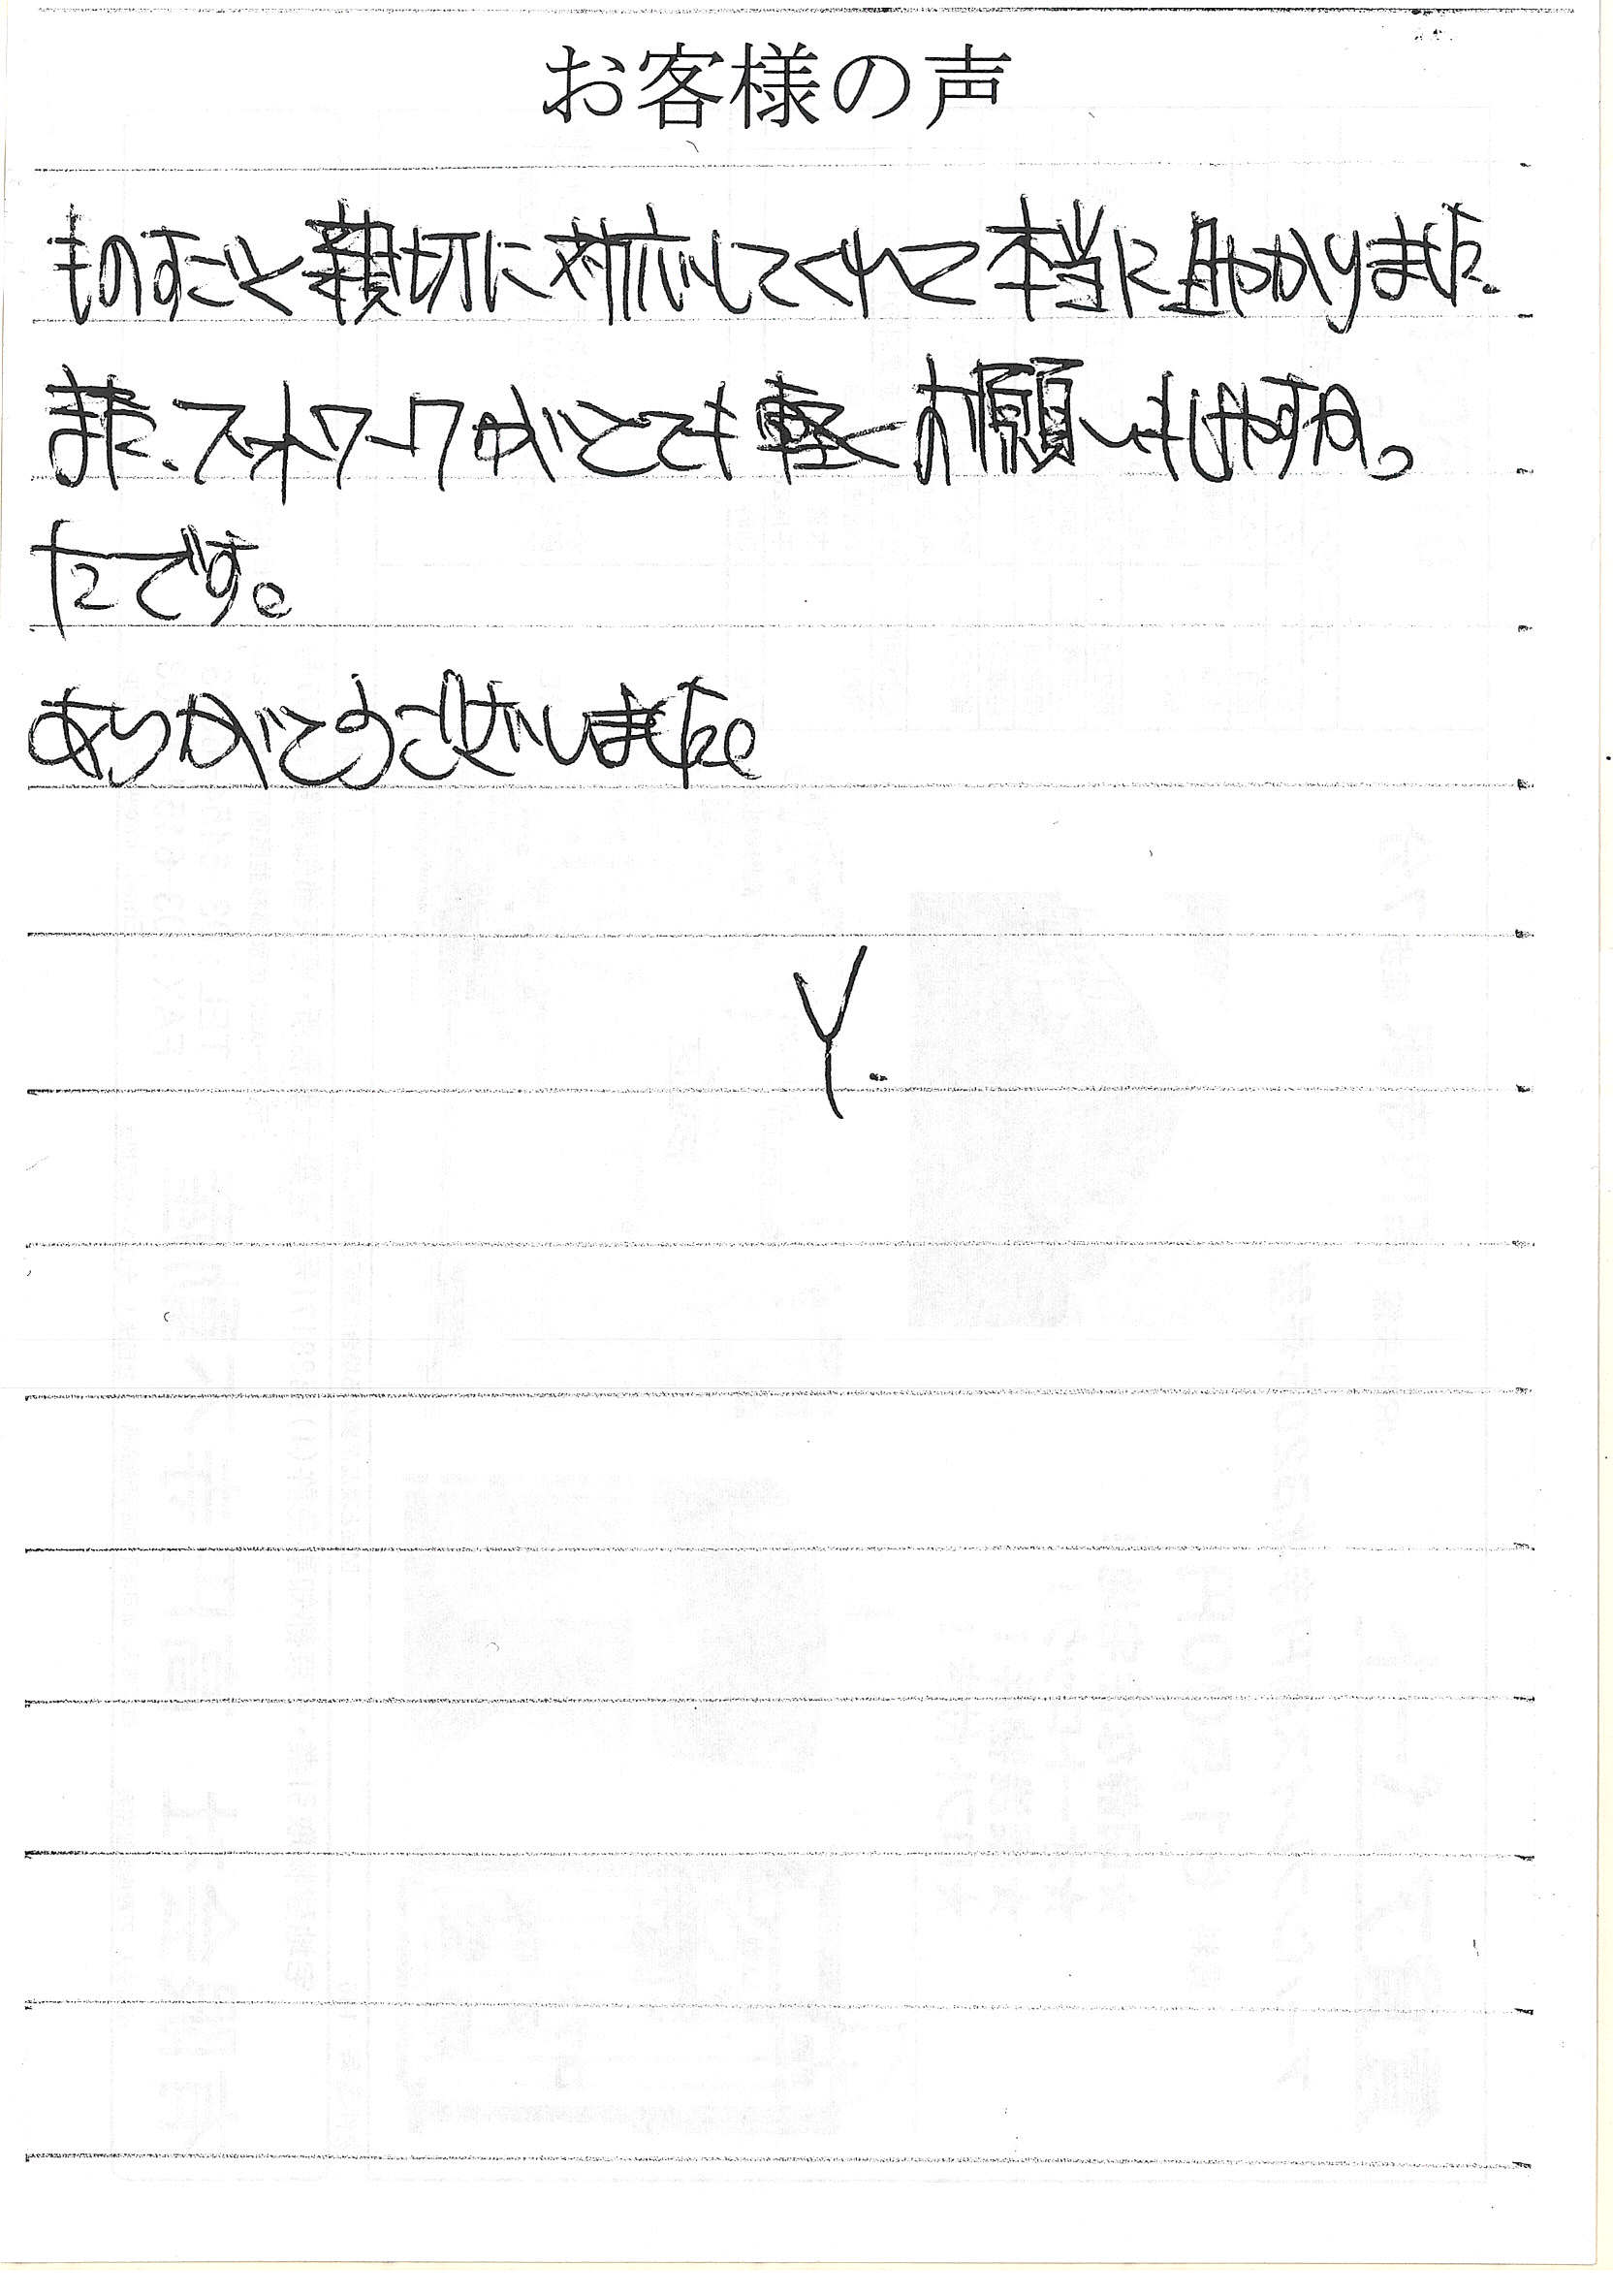 お客様の声
ものすごく親切に対応してくれて本当に助かりました.
また、フットワークがとても軽くお願いしやすかっ
たです。
ありがとうございました。
Y.